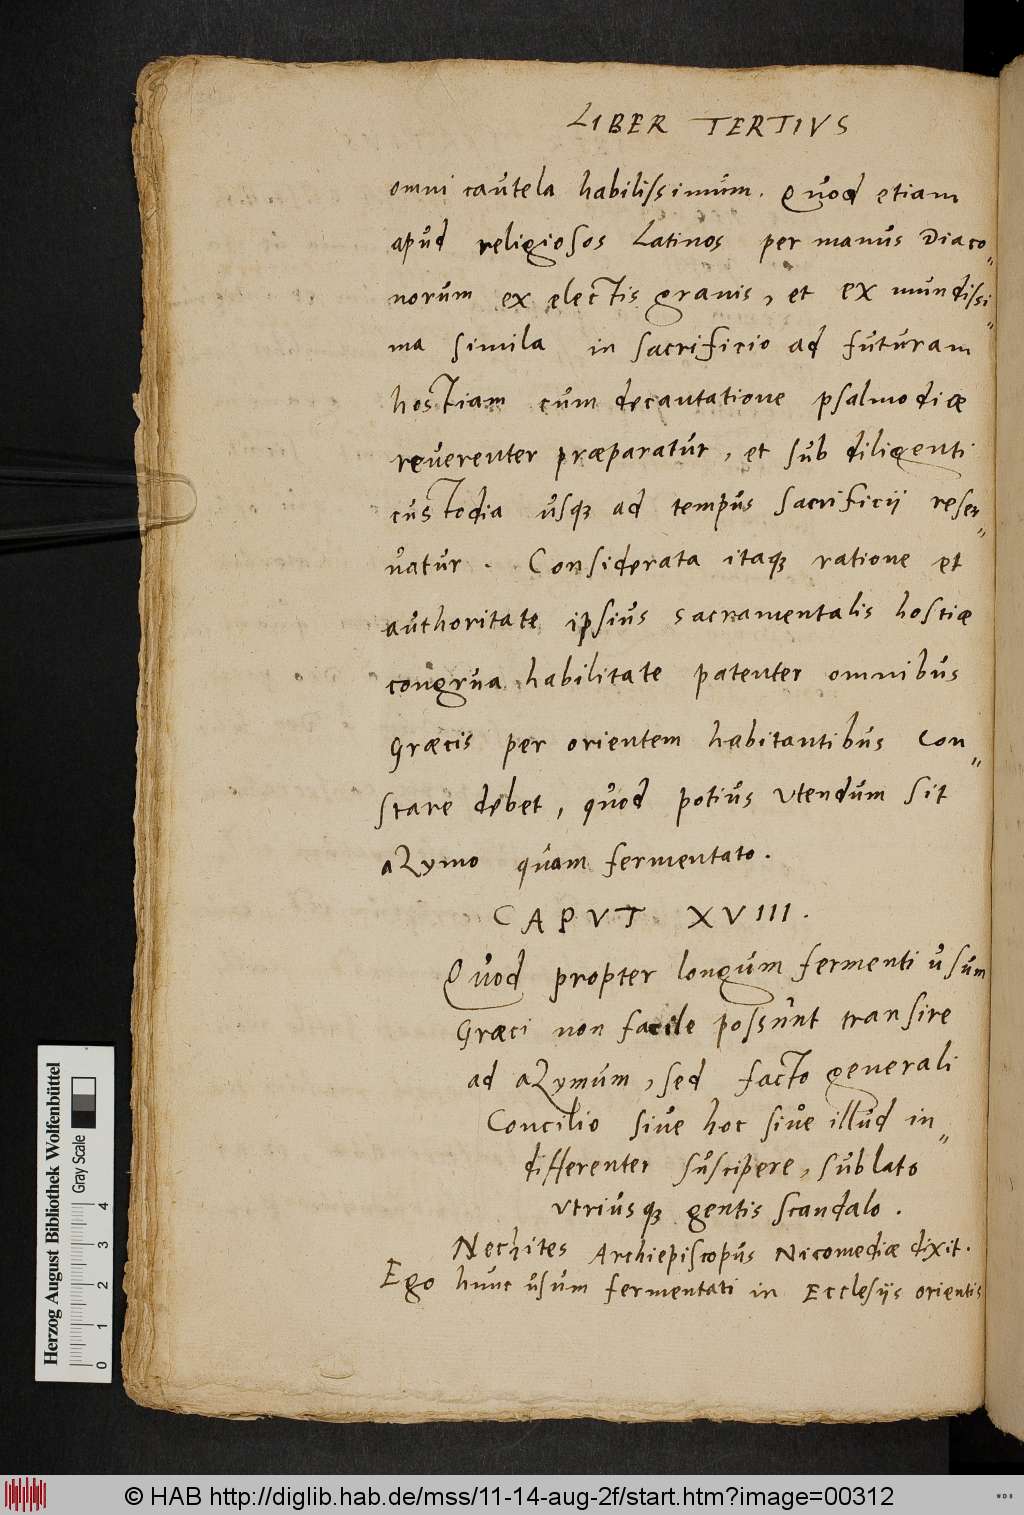 LIBER TERTIVS
omni cautela habilissimum. Quod etiam
apud religiosos Latinos per manus Diaco=
norum ex electis granis, et ex mundissi=
ma simila in sacrificio ad futuram
hostiam cum decantatione psalmodiæ
reverenter præparatur, et sub diligenti
custodia usq3 ad tempus sacrificij reser=
vatur. Considerata itaq3 ratione et
authoritate ipsius sacramentalis hostiæ
congrua habilitate patenter omnibus
Græcis per orientem habitantibus con=
stare debet, quod potius vtendum sit
aZymo quam fermentato.
CAPVT XVIII.
Quod propter longum fermenti usum
Græci non facile possunt transire
ad aZymum, sed facto generali
Concilio sive hoc sive illud in=
differenter suscipere, sublato
vtriusq3 gentis scandalo.
Nechites Archiepiscopus Nicomediæ dixit.
Ego hunc usum fermentati in Ecclesijs orientis
Herzog August Bibliothek Wolfenbüttel
Gray Scale
0 1 2 3 4
© HAB http://diglib.hab.de/mss/11-14-aug-2f/start.htm?image=00312